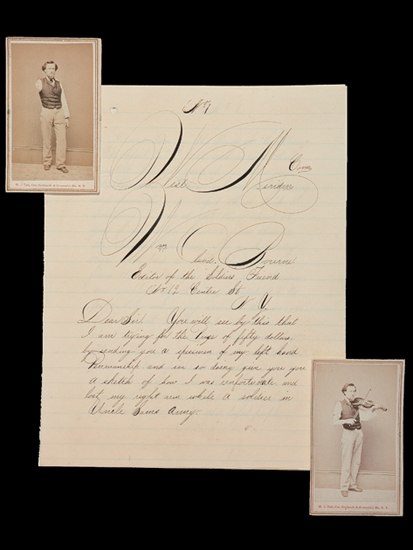 No 1
West Meriden
Conn
Wm Oland Bourne
Editor of the Soldiers Friend
No 12 Center St
N.Y.
Dear Sir: You will see by this that
I am trying for the prize of fifty dollars
by sending you a specimen of my left hand
Penmanship and in so doing give you
A sketch of how I was unfortunate and
lost my right arm while A soldier in
Uncle Sams Army